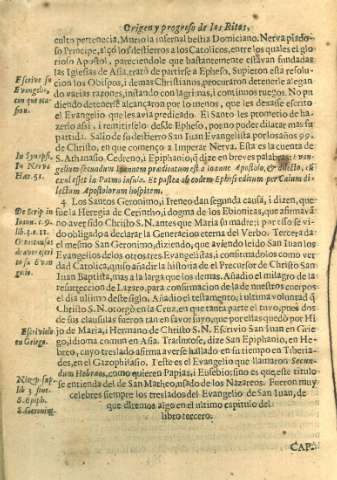 Origen y progreso de los Ritos,
culto pertenecia. Murio la infernal bestia Domiciano. Nerva piados-
so Principe, alçó los destierros a los Catolicos, entre los quales el glo-
rioso Apostol, pareciendole que bastantemente estavan fundadas
las Iglesias de Asia, trató de partirse a Epheso. Supieron esta resolu-
cion los Obispos, i demas Christianos, procuraron detenerle alegan-
do varias razones, instando con lagrimas, i continuos ruegos. No pu-
diendo detenerle alcançaron por lo menos, que les dexase escrito
el Evangelio que les avia predicado. El Santo les prometio de ha-
zerlo assi, i remitirselo desde Epheso, por no poder dilatar mas su
partida. Salio de su destierro San Juan Evangelista por los años 99.
de Christo, en que començo a Imperar Nerva. Esta es la cuenta de
S. Athanasio, Cedreno, i Epiphanio, i dize en breves palabras: Evan-
gelium secundum Ioannem praedicatum est a Ioanne Apostolo, & dilecto, cu
exul esset in Patmo Insula. Et postea ab eodem Ephesi editum per Caium di-
lectum Apostolorum hospitem.
4. Los Santos Geronimo, i Ireneo dan segunda causa, i dizen, que
fue la Heregia de Cerintho, i dogma de los Ebionitas, que afirmavã
no aver sido Christo S.N. antes que Maria su madre; i por esto se vi-
do obligado a declarar la Generacion eterna del Verbo. Tercera da
el mesmo San Geronimo, diziendo, que aviendo leido San Iuan los
Evangelios de los otros tres Evangelistas, i confirmadolos como ver-
dad Catolica, quiso añadir la historia de el Precursor de Christo San
Iuan Baptista, mas a la larga que los demas. Añadio el milagro de la
resurreccion de Lazaro, para confirmacion de la de nuestros cuerpos
el dia ultimo deste siglo. Añadio el testamento, i ultima voluntad q̃
Christo S.N. otorgò en la Cruz, en que tanta parte el tuvo, pues dos
de sus clausulas fueron tan en favor suyo, que por ellas quedò por Hi
jo de Maria, i Hermano de Christo S.N. Escrivio San Iuan en Grie-
go, idioma comun en Asia. Traduxose, dize San Epiphanio, en He-
breo, cuyo treslado afirma averse hallado en su tiempo en Tiberia-
des, en el Gazophilasio. Teste es el Evangelio que llamaron Secun-
dum Hebraeos, como quieren Papias, i Eusebio; sino es que este titulo
se entienda del de San Matheo, usado de los Nazareos. Fueron muy
celebres siempre los treslados del Evangelio de San Iuan, de
que diremos algo en el ultimo capitulo del
libro tercero.
CAP.
Escrive su
Evangelio,
con que oca-
sion.
In Synopsi.
In Nerva
Haer. 51.
De Scrip in
Ioann. c. 9.
lib. 3. c. 11.
Escriviolo
en Griego.
Nicep. sup.
lib. 3. fine.
S. Epiph.
S. Geronim.